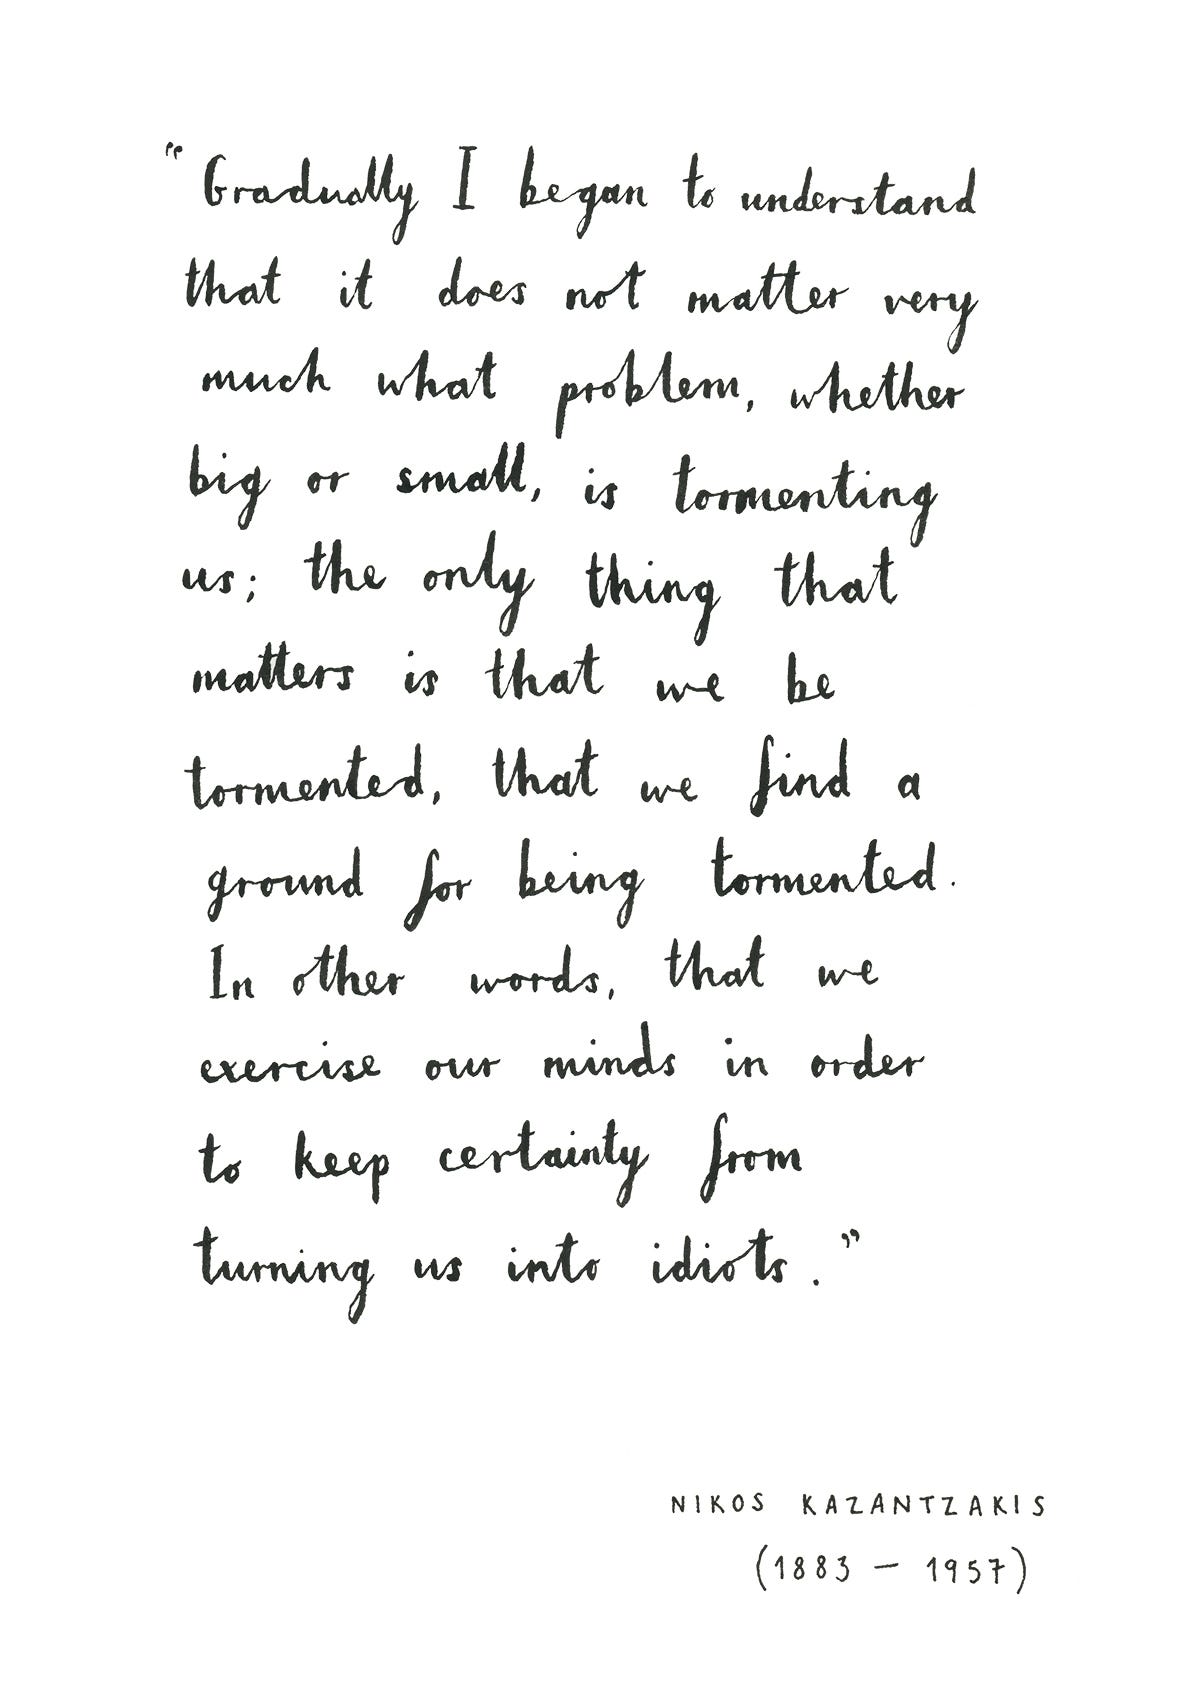 “Gradually I began to understand
that it does not matter very
much what problem, whether
big or small, is tormenting
us; the only thing that
matters is that we be
tormented, that we find a
ground for being tormented.
In other words, that we
exercise our minds in order
to keep certainty from
turning us into idiots.”
NIKOS KAZANTZAKIS
(1883 – 1957)